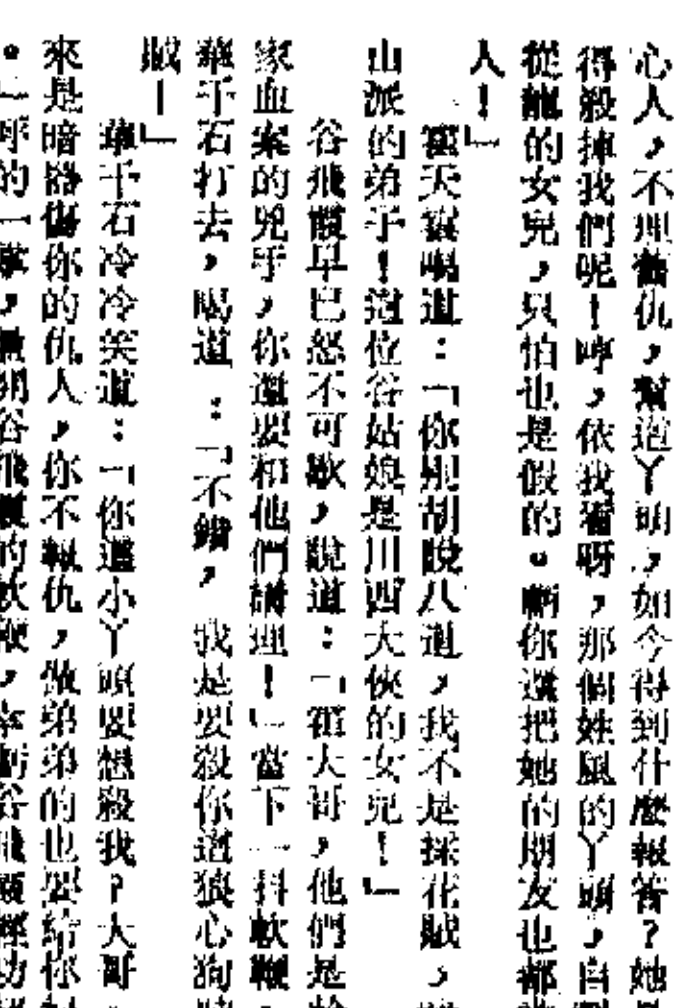 心人，不理舊仇，幫這丫頭，如今得到什麼報答？她
得殺掉我們呢！哼，依我看呀，那個姓鳳的丫頭，自
從龍的女兒，只怕也是假的。啊你還把她的朋友也都
人！」
霍天霖喝道：「你別胡說八道，我不是採花賊，
山派的弟子！這位谷姑娘是川西大俠的女兒！」
谷飛霞早已怒不可歇，說道：「霍大哥，他們是
家血案的兇手，你還要和他們講理！」當下一抖軟鞭，
華千石打去，喝道：「不錯，我是要殺你這狼心狗
賊！」
華千石冷冷笑道：「你這小丫頭要想殺我？大哥，
來是暗器傷你的仇人，你不報仇，做弟弟的也要給你
。」呼的一掌，谷飛霞的軟鞭，谷飛霞輕功